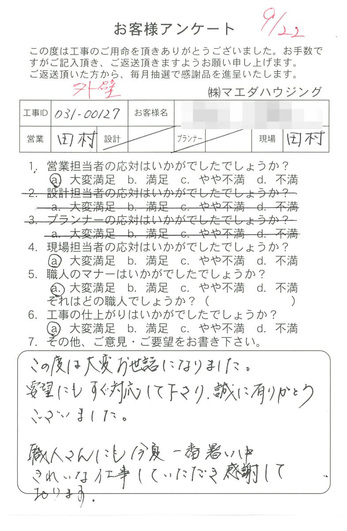 9/22
お客様アンケート
この度は工事のご用命を頂きありがとうございました。お手数で
すがご記入頂き、ご返送頂きますようお願い申し上げます。
ご返送頂いた方から、毎月抽選で感謝品を進呈いたします。
外壁
㈱マエダハウジング
工事ID 031-00127 お客様名
営業 田村 設計 プランナー 現場 田村
1. 営業担当者の応対はいかがでしたでしょうか？
a. 大変満足 b. 満足 c. やや不満 d. 不満
2. 設計担当者の応対はいかがでしたでしょうか？
a. 大変満足 b. 満足 c. やや不満 d. 不満
3. プランナーの応対はいかがでしたでしょうか？
a. 大変満足 b. 満足 c. やや不満 d. 不満
4. 現場担当者の応対はいかがでしたでしょうか？
a. 大変満足 b. 満足 c. やや不満 d. 不満
5. 職人のマナーはいかがでしたでしょうか？
a. 大変満足 b. 満足 c. やや不満 d. 不満
それはどの職人でしょうか？（ ）
6. 工事の仕上がりはいかがでしたでしょうか？
a. 大変満足 b. 満足 c. やや不満 d. 不満
7. その他、ご意見・ご要望をお書き下さい。
この度は大変お世話になりました。
要望にもすぐ対応して下さり、誠に有りがとう
ございました。
職人さんにも今夏一番暑い中
きれいな仕事していただき感謝して
おります。